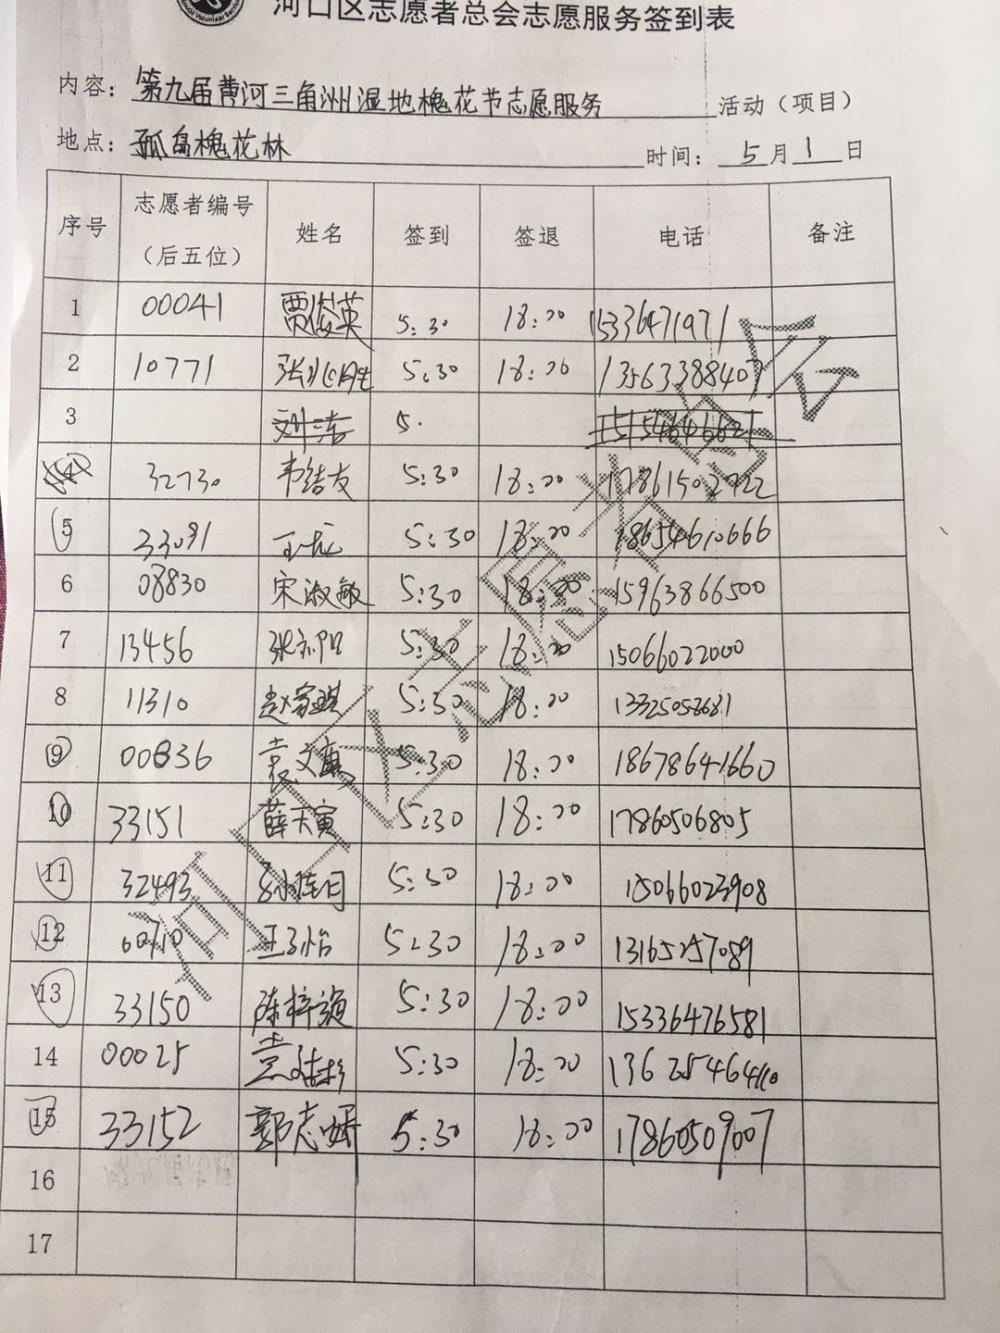 河口区志愿者总会志愿服务签到表
内容：第九届黄河三角洲湿地槐花节志愿服务 活动（项目）
地点：孤岛槐花林 时间：5月1日
序号 志愿者编号（后五位） 姓名 签到 签退 电话 备注
1 00041 贾俊英 5:30 18:00 15336471971
2 10771 5:30 18:00 13563388407
3 5.
32730 韦结友 5:30 18:00 17861502722
5 33091 5:30 18:00 18654610666
6 08830 宋淑敏 5:30 18:00 15963866500
7 13456 5:30 18:00 15066022000
8 11310 赵家琪 5:30 18:00
9 00836 袁文 5:30 18:00 18678641660
10 33151 薛天寅 5:30 18:00 17860506805
11 32493 5:30 18:00 15066023908
12 王子怡 5:30 18:00 13165257089
13 33150 陈梓颖 5:30 18:00 15336476581
14 00025 5:30 18:00
15 33152 郭志 5:30 18:00 17860509007
16
17
河口区志愿者总会